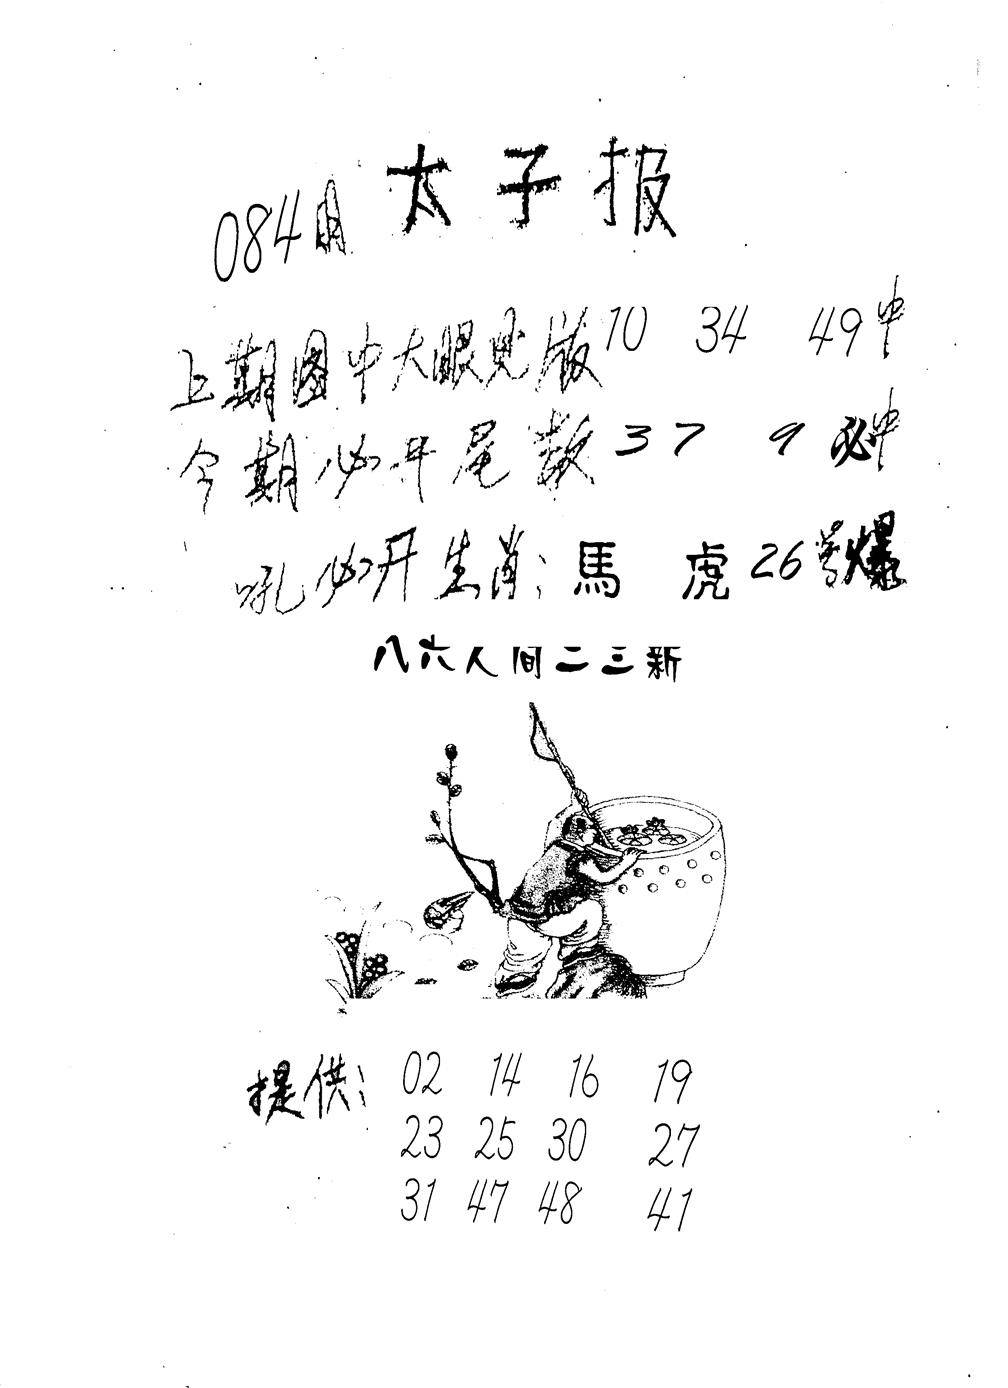 太子报
084期
上期图中大眼见版 10 34 49中
今期必开尾数 3 7 9 必中
吼必开生肖: 馬 虎 26 号爆
八六人间二三新
提供: 02 14 16 19
23 25 30 27
31 47 48 41